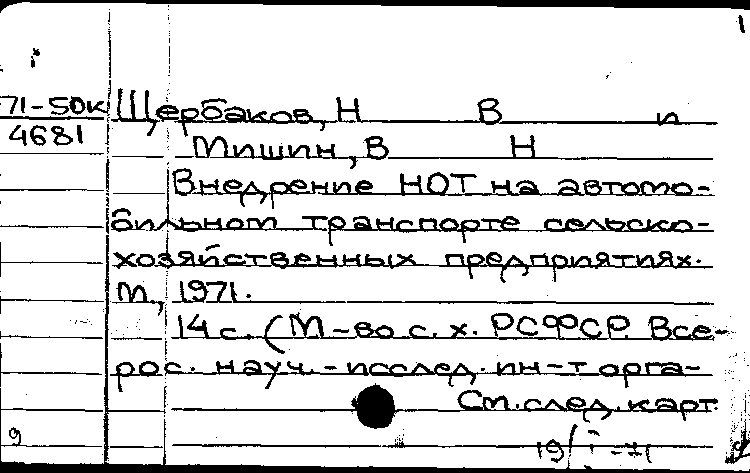 1
i
71-50к Щербаков, Н В и
4681 Мишин, В Н
Внедрение НОТ на автомо-
бильном транспорте сельско-
хозяйственных предприятиях.
М., 1971.
14 с. (М-во с. х. РСФСР. Все-
рос. науч.-исслед. ин-т орга-
См. след. карт.
9 19/i-71